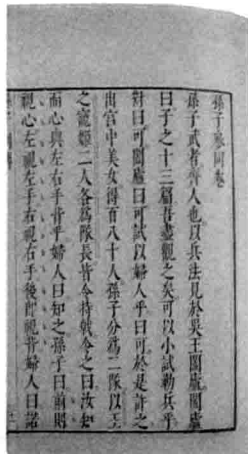 孫子參同卷
孫子武者齊人也以兵法見於吳王闔廬闔廬
曰子之十三篇吾盡觀之矣可以小試勒兵乎
對曰可闔廬曰可試以婦人乎曰可於是許之
出宮中美女得百八十人孫子分爲二隊以王
之寵姬二人各爲隊長皆令持戟令之曰汝知
而心與左右手背乎婦人曰知之孫子曰前則
視心左視左手右視右手後即視背婦人曰諾